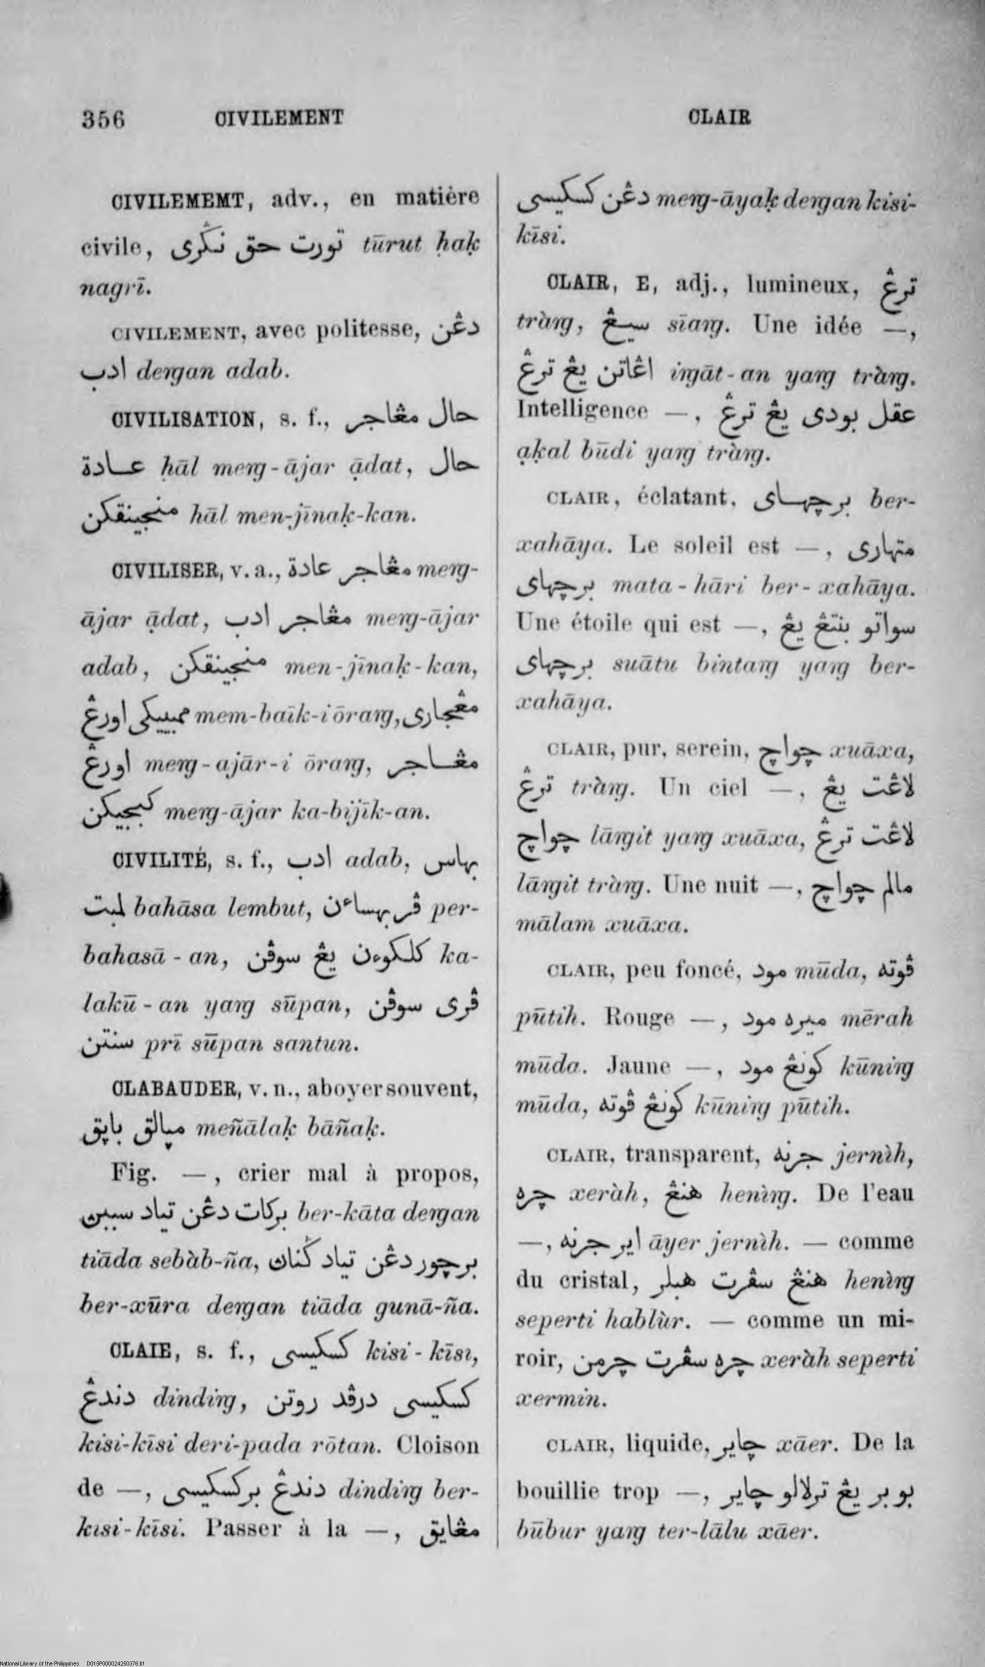 356 CIVILEMENT CLAIR
CIVILEMEMT, adv., en matière
civile, تورت حق نݢري tūrut ḥaḳ
nagrī.
CIVILEMENT, avec politesse, دڠن
ادب deṅgan adab.
CIVILISATION, s. f., حال مڠاجر
عادة ḥāl meṅg-ājar ạ̄dat, حال
منجينقكن ḥāl men-jīnaḳ-kan.
CIVILISER, v. a., مڠاجر عادة meṅg-
ājar ạ̄dat, مڠاجر ادب meṅg-ājar
adab, منجينقكن men-jīnaḳ-kan,
ممبيكي اورڠ mem-baīk-i ōraṅg, مڠجاري
اورڠ meṅg-ajār-i ōraṅg, مڠاجر
كبجيكن meṅg-ājar ka-bijīk-an.
CIVILITÉ, s. f., ادب adab, بهاس
لمبت bahāsa lembut, ڤربهساءن per-
bahasā-an, كلكوءن يڠ سوڤن ka-
lakū-an yaṅg sūpan, ڤري سوڤن
سنتن prī sūpan santun.
CLABAUDER, v. n., aboyer souvent,
مپالق باپق meñālaḳ bāñaḳ.
Fig. —, crier mal à propos,
بركات دڠن تياد سببن ber-kāta deṅgan
tiāda sebàb-ña, برچور دڠن تياد ݢنان
ber-xūra deṅgan tiāda gunā-ña.
CLAIE, s. f., كسكيسي kisi-kīsi,
دندڠ dindiṅg, كسكيسي درڤد روتن
kisi-kīsi deri-pada rōtan. Cloison
de —, دندڠ بركسكيسي dindiṅg ber-
kisi-kīsi. Passer à la —, مڠايق
دڠن كسكيسي meṅg-āyaḳ deṅgan kisi-
kīsi.
CLAIR, E, adj., lumineux, ترڠ
tràṅg, سيڠ sīaṅg. Une idée —,
اڠاتن يڠ ترڠ iṅgāt-an yaṅg tràṅg.
Intelligence —, عقل بودي يڠ ترڠ
ạḳal būdi yaṅg tràṅg.
CLAIR, éclatant, برچهاي ber-
xahāya. Le soleil est —, متهاري
برچهاي mata-hāri ber-xahāya.
Une étoile qui est —, سواتو بنتڠ يڠ
برچهاي suātu bintaṅg yaṅg ber-
xahāya.
CLAIR, pur, serein, چواچ xuāxa,
ترڠ tràṅg. Un ciel —, لاڠت يڠ
چواچ lāṅgit yaṅg xuāxa, لاڠت ترڠ
lāṅgit tràṅg. Une nuit —, مالم چواچ
mālam xuāxa.
CLAIR, peu foncé, مود mūda, ڤوته
pūtih. Rouge —, ميره مود mērah
mūda. Jaune —, كونڠ مود kūniṅg
mūda, كونڠ ڤوته kūniṅg pūtih.
CLAIR, transparent, جرنه jernìh,
چره xeràh, هنڠ henìṅg. De l'eau
—, اير جرنه āyer jernìh. — comme
du cristal, هنڠ سڤرت هبلر henìṅg
seperti hablùr. — comme un mi-
roir, چره سڤرت چرمن xeràh seperti
xermin.
CLAIR, liquide, چاير xāer. De la
bouillie trop —, بوبر يڠ ترلالو چاير
būbur yaṅg ter-lālu xāer.
National Library of the Philippines